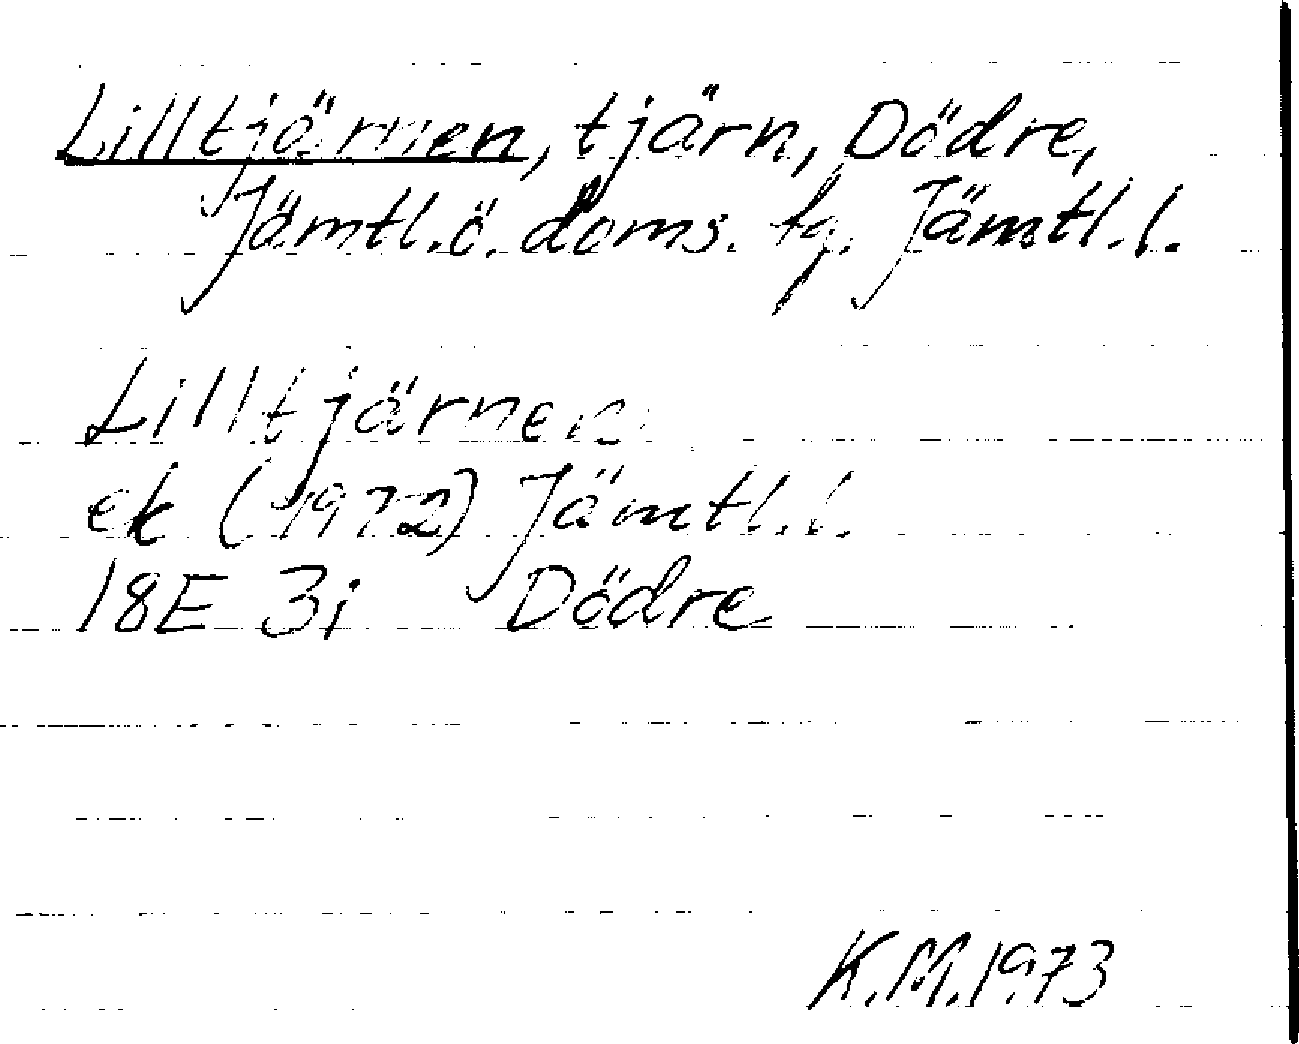 Lilltjärnen, tjärn, Dödre,
Jämtl.ö.doms. fg. Jämtl.l.
Lilltjärnen
ek (1972) Jämtl.l.
18E 3i Dödre
K.M.1973